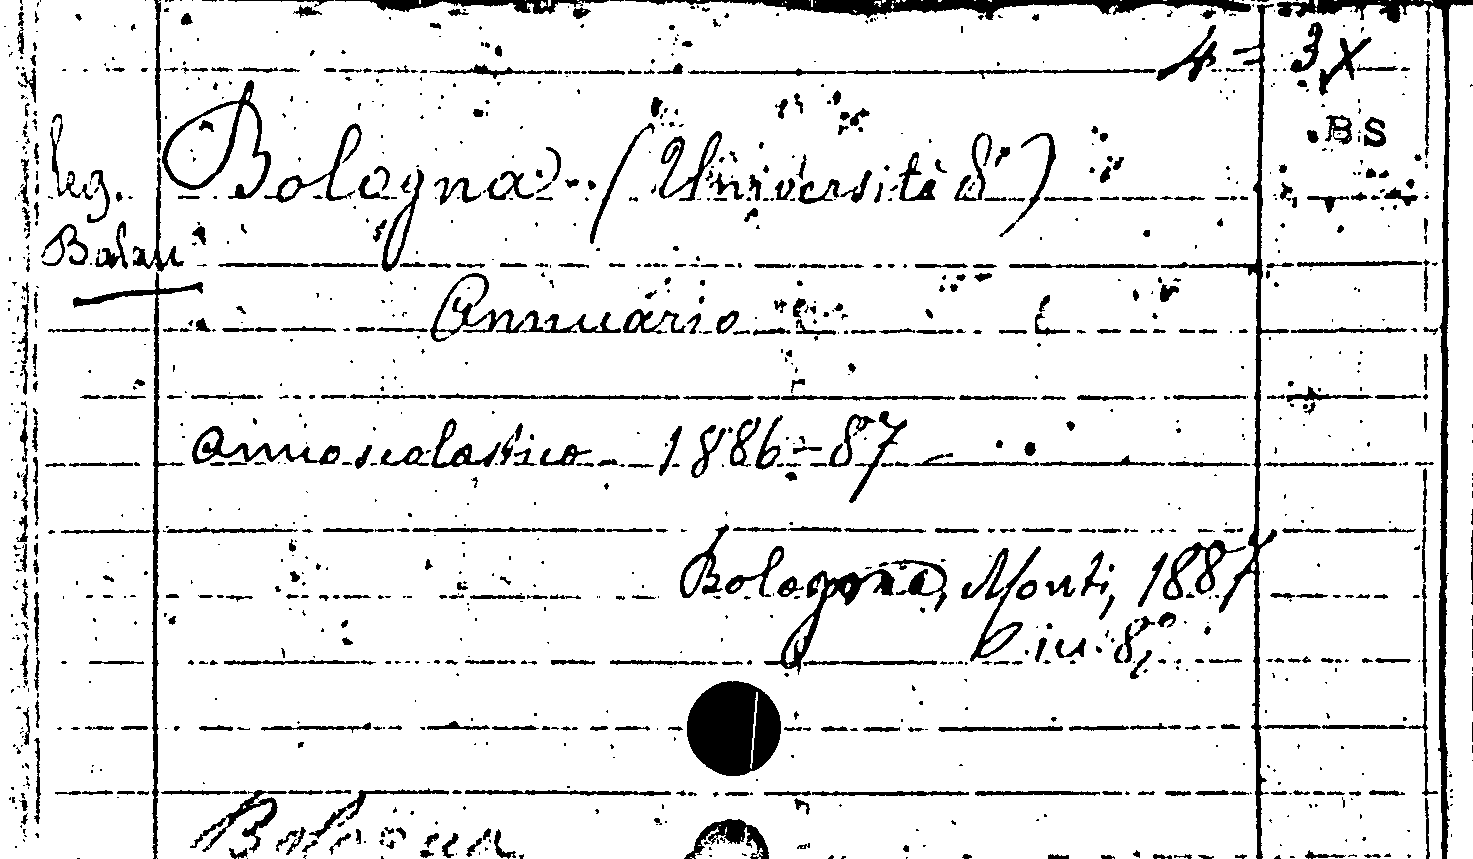 4 = 3X
BS
Leg.
Balau
Bologna. (Università di)
Annuario
anno scolastico 1886-87
Bologna, Monti, 1887
in 8°
Bologna